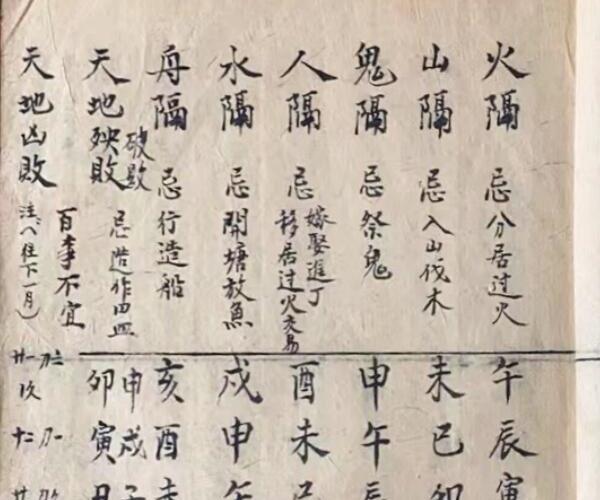 火隔 忌分居过火 午辰寅
山隔 忌入山伐木 未巳卯
鬼隔 忌祭鬼 申午辰
人隔 忌嫁娶進丁
移居过火交易 酉未巳
水隔 忌開塘放魚 戌申午
舟隔 忌行造船 亥酉未
天地殃敗 破敗 忌造作田 申戌子
卯寅丑
天地凶敗 百事不宜
往下一月